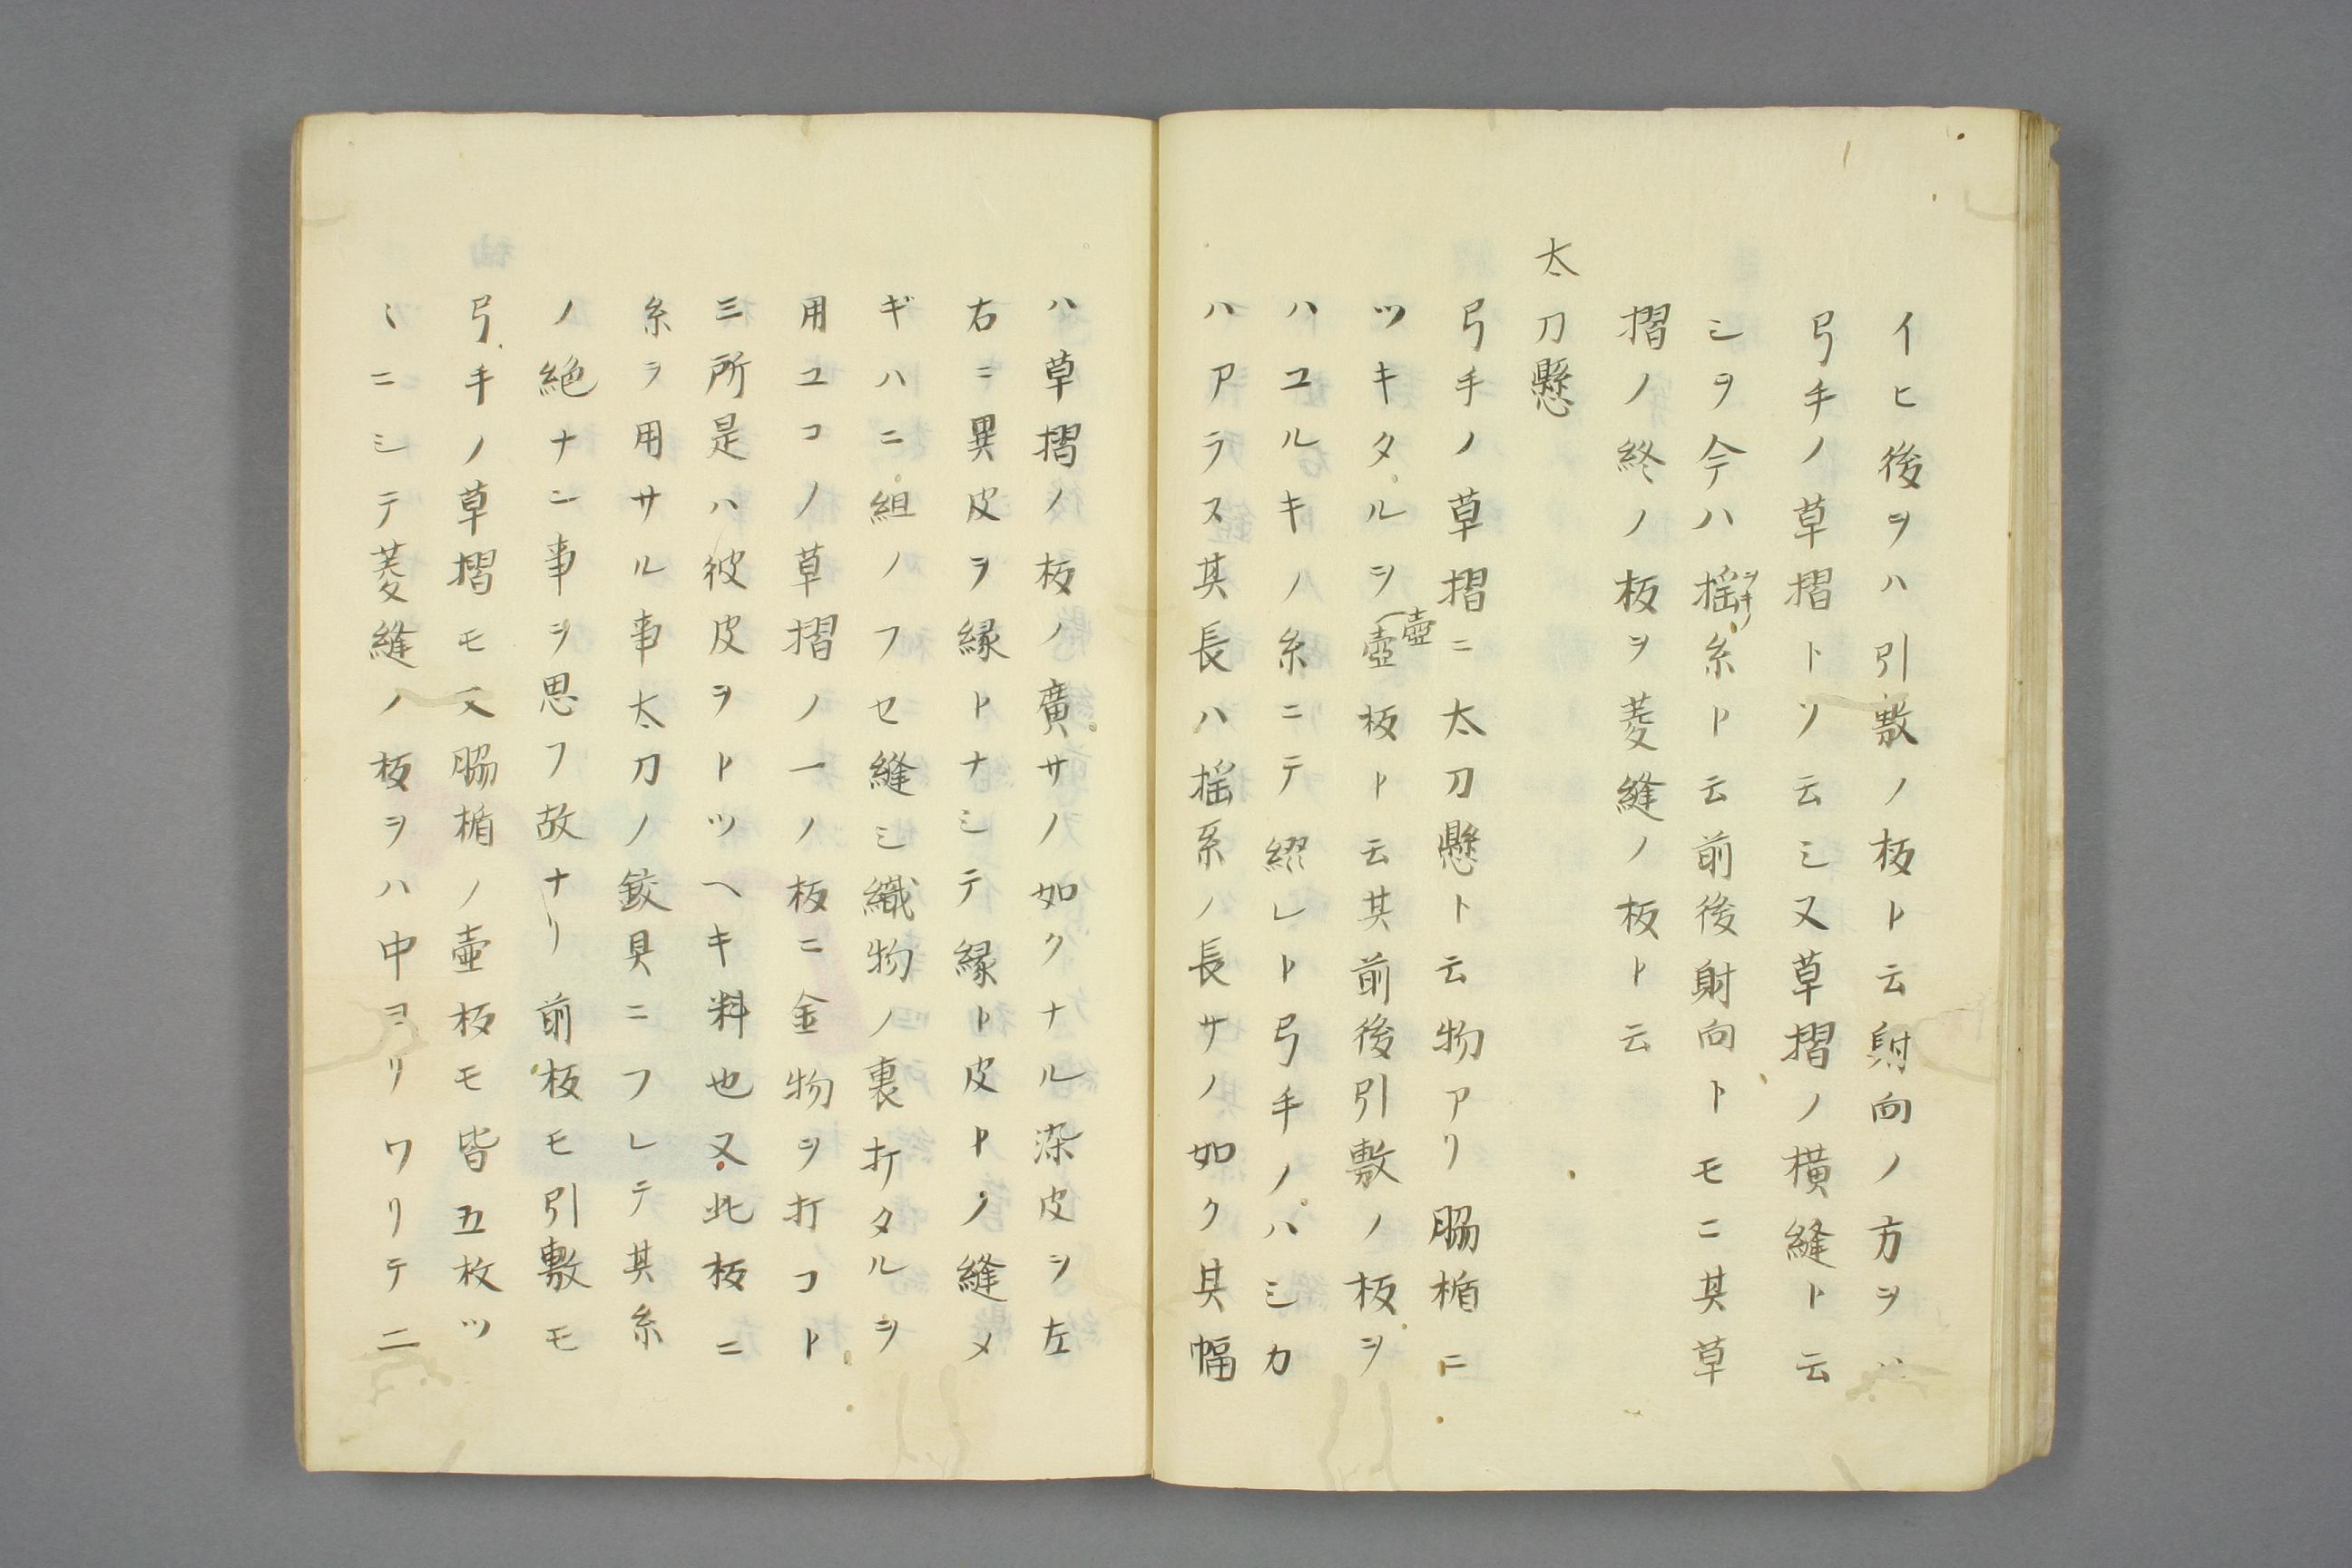 イヒ後ヲハ引敷ノ板ト云射向ノ方ヲハ
弓手ノ草摺トソ云シ又草摺ノ横縫ト云
シヲ今ハ揺糸ト云前後射向トモニ其草
ユキノ
摺ノ終ノ板ヲ菱縫ノ板ト云
太刀懸
弓手ノ草摺ニ太刀懸ト云物アリ脇楯ニ
壺
ツキタルヲ壺板ト云其前後引敷ノ板ヲ
ハユルキノ糸ニテ綴レト弓手ノハシカ
ハアラス其長ハ揺糸ノ長サノ如ク其幅
ハ草摺ノ板ノ廣サノ如クナル染皮ヲ左
右ニ異皮ヲ縁トナシテ縁ト皮トノ縫メ
ギハニ組ノフセ縫シ織物ノ裏打タルヲ
用ユコノ草摺ノ一ノ板ニ金物ヲ打コト
三所是ハ彼皮ヲトツヘキ料也又此板ニ
糸ヲ用サル事太刀ノ鉸具ニフレテ其糸
ノ絶ナン事ヲ思フ故ナリ前板モ引敷モ
弓手ノ草摺モ又脇楯ノ壷板モ皆五枚ツ
ヽニシテ菱縫ノ板ヲハ中ヨリワリテ二